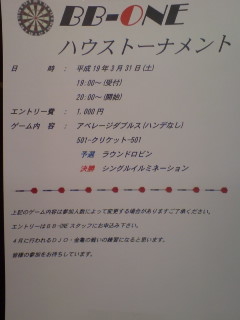 BB-ONE
ハウストーナメント
日　　　時　：　平成19年3月31日(土)
19:00～(受付)
20:00～(開始)
エントリー費　：　1,000円
ゲーム内　容　：　アベレージダブルス(ハンデなし)
501-クリケット-501
予選　ラウンドロビン
決勝　シングルイルミネーション
上記のゲーム内容は参加人数によって変更する場合がありますご了承ください。
エントリーはBB-ONEスタッフにお申込み下さい。
4月に行われるDJO・金亀の戦いの練習になると思います。
皆様の参加をお待ちしています。